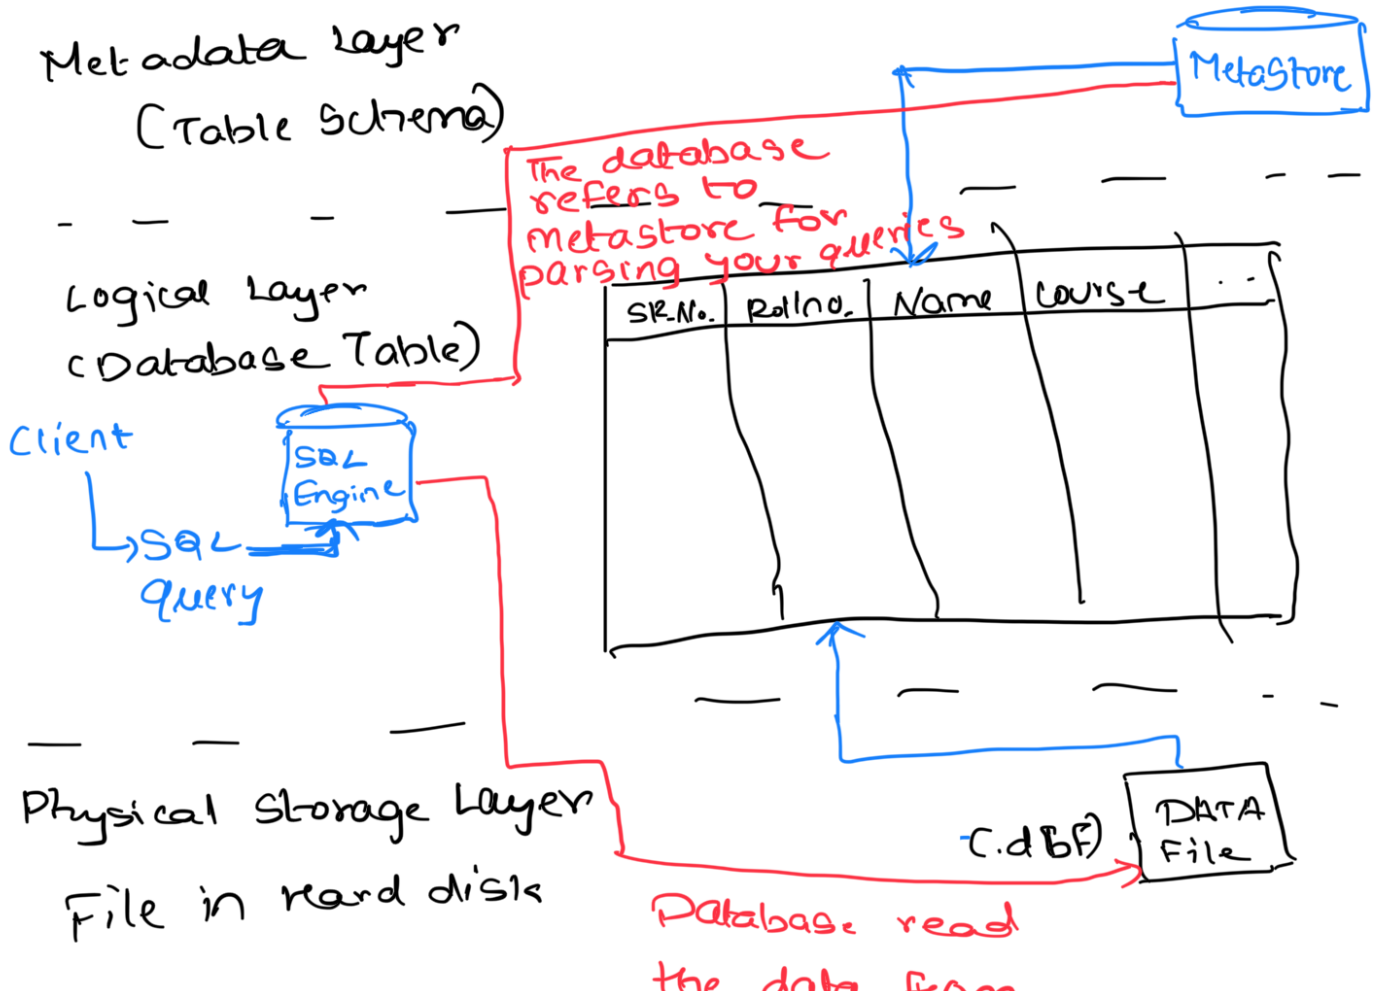 Metadata Layer
(Table Schema)
MetaStore
The database
refers to
metastore for
parsing your queries
Logical Layer
(Database Table)
SR.No. Rollno. Name Course ..
Client
SQL
Engine
SQL
query
Physical Storage Layer
File in hard disk
(.dbf)
DATA
File
Database read
the data from